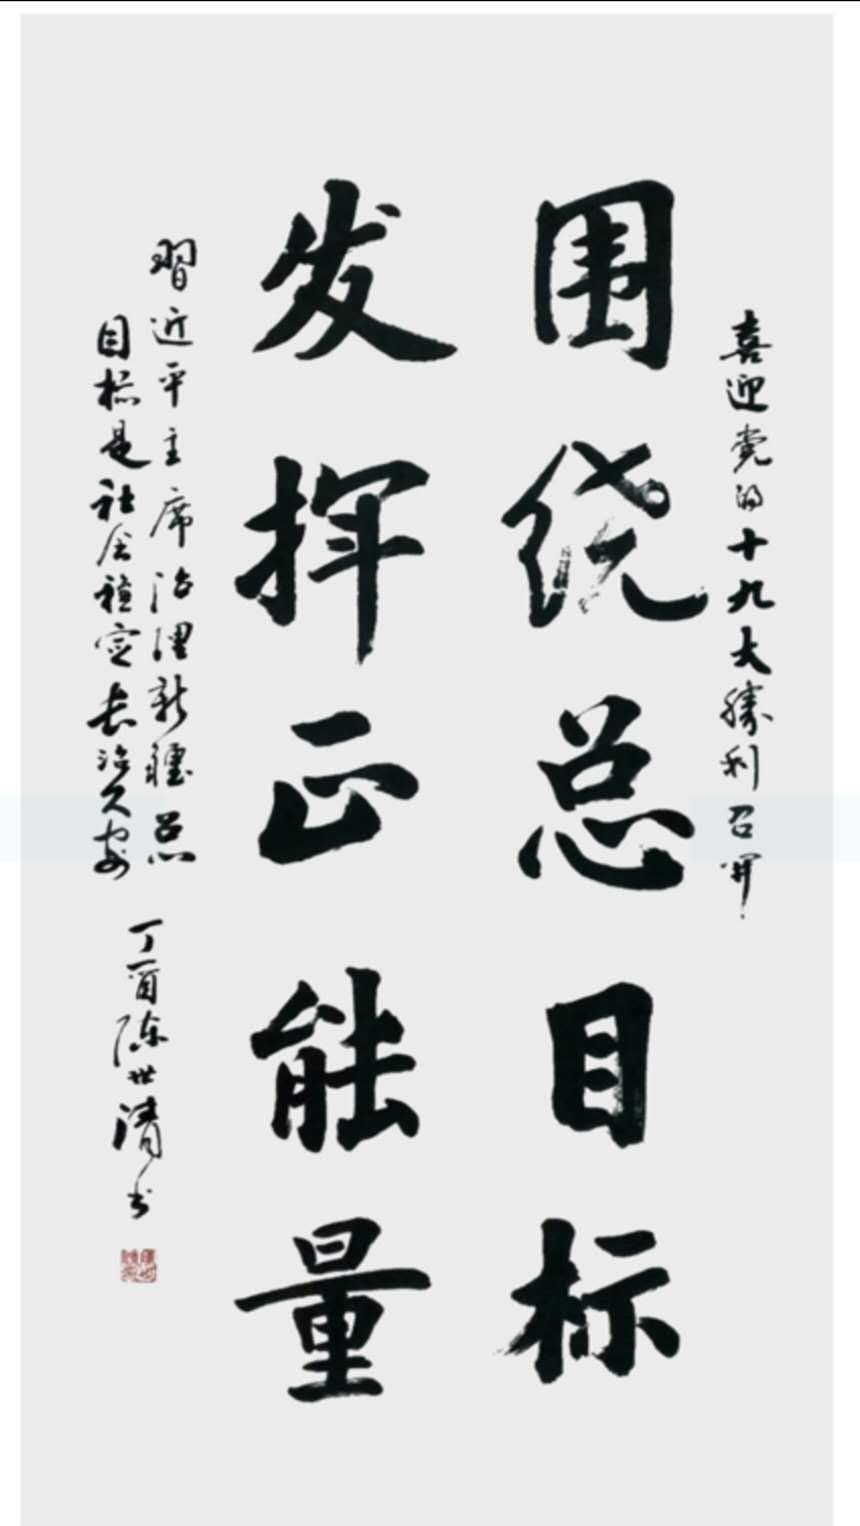 喜迎党的十九大勝利召开！
围绕总目标
发挥正能量
習近平主席治理新疆总
目标是社会稳定长治久安
丁酉陈世清书